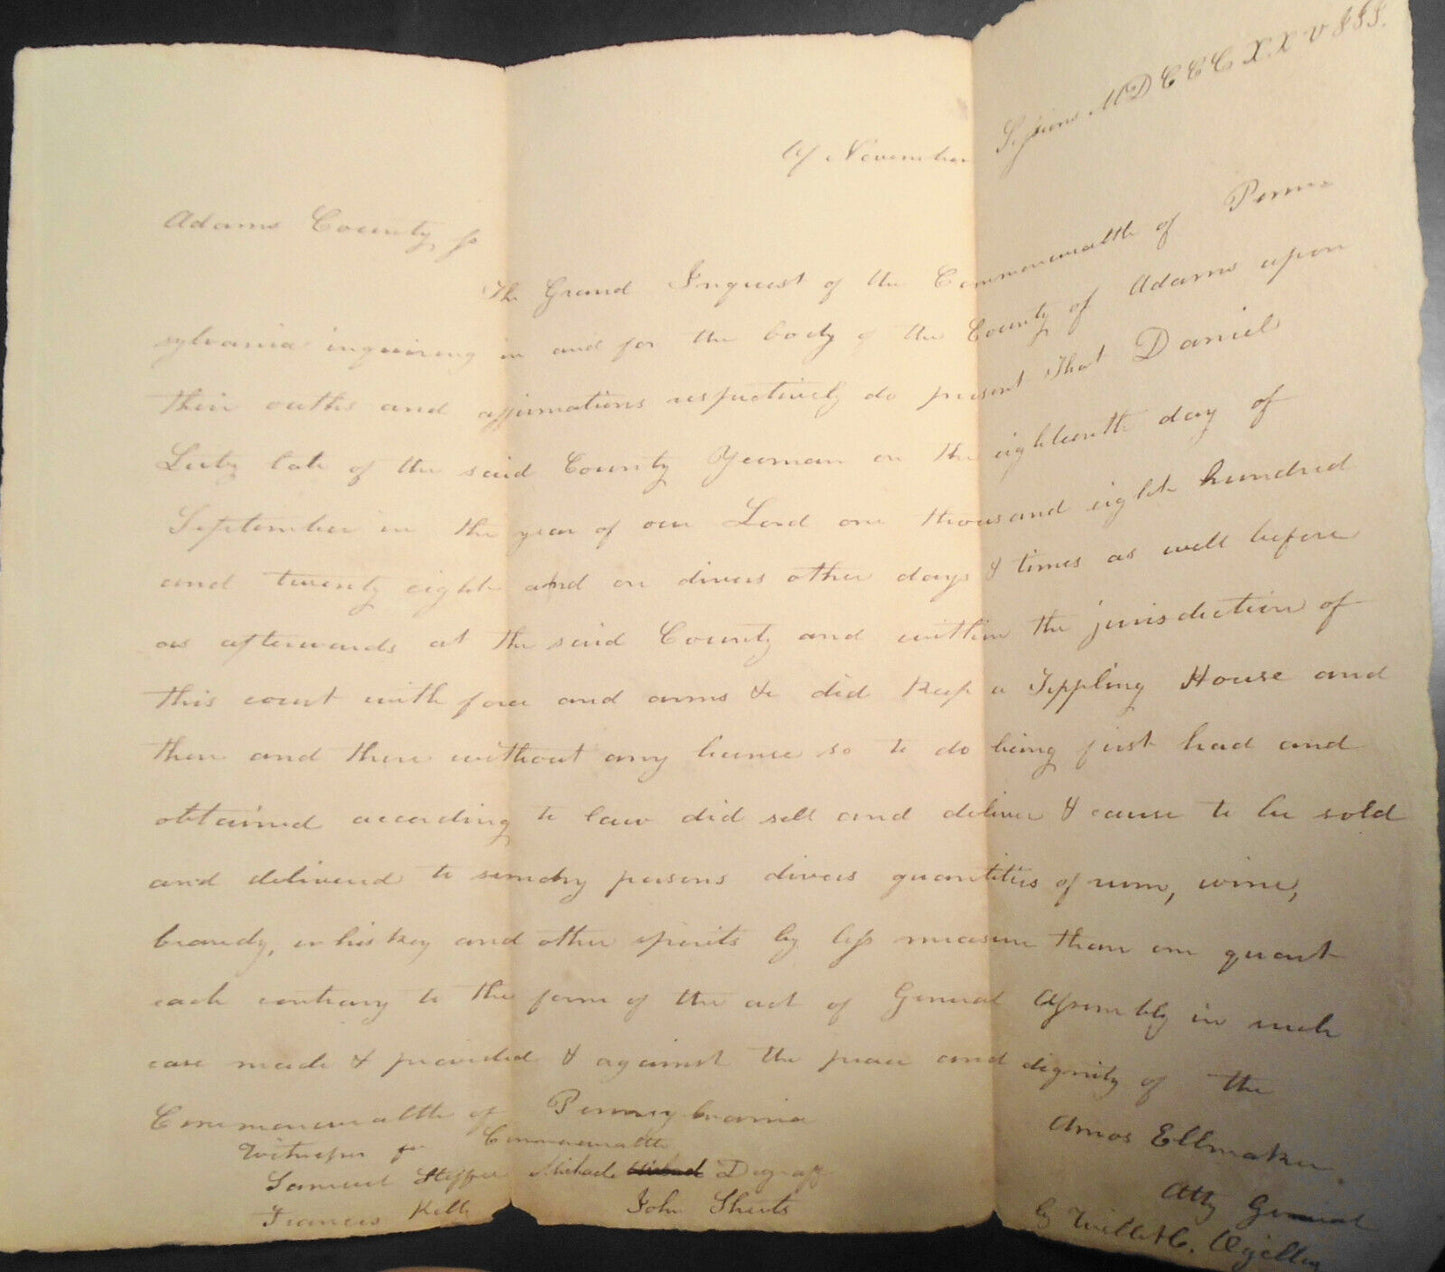 Of November Sessions MDCCCXXVIII.
Adams County ss
The Grand Inquest of the Commonwealth of Penn
sylvania inquiring in and for the body of the County of Adams upon
their oaths and affirmations respectively do present That Daniel
Lutz late of the said County Yeoman on the eighteenth day of
September in the year of our Lord one thousand eight hundred
and twenty eight and on divers other days & times as well before
as afterwards at the said County and within the jurisdiction of
this court with force and arms &c did keep a Tippling House and
then and there without any license so to do being first had and
obtained according to law did sell and deliver & cause to be sold
and delivered to sundry persons divers quantities of rum, wine,
brandy, whiskey and other spirits by less measure than one quart
each contrary to the form of the act of General Assembly in such
case made & provided & against the peace and dignity of the
Commonwealth of Pennsylvania
Witnesses for Commonwealth
Samuel Michael Degraff
Francis John Sheets
Amos Ellmaker
Atty General
by Will